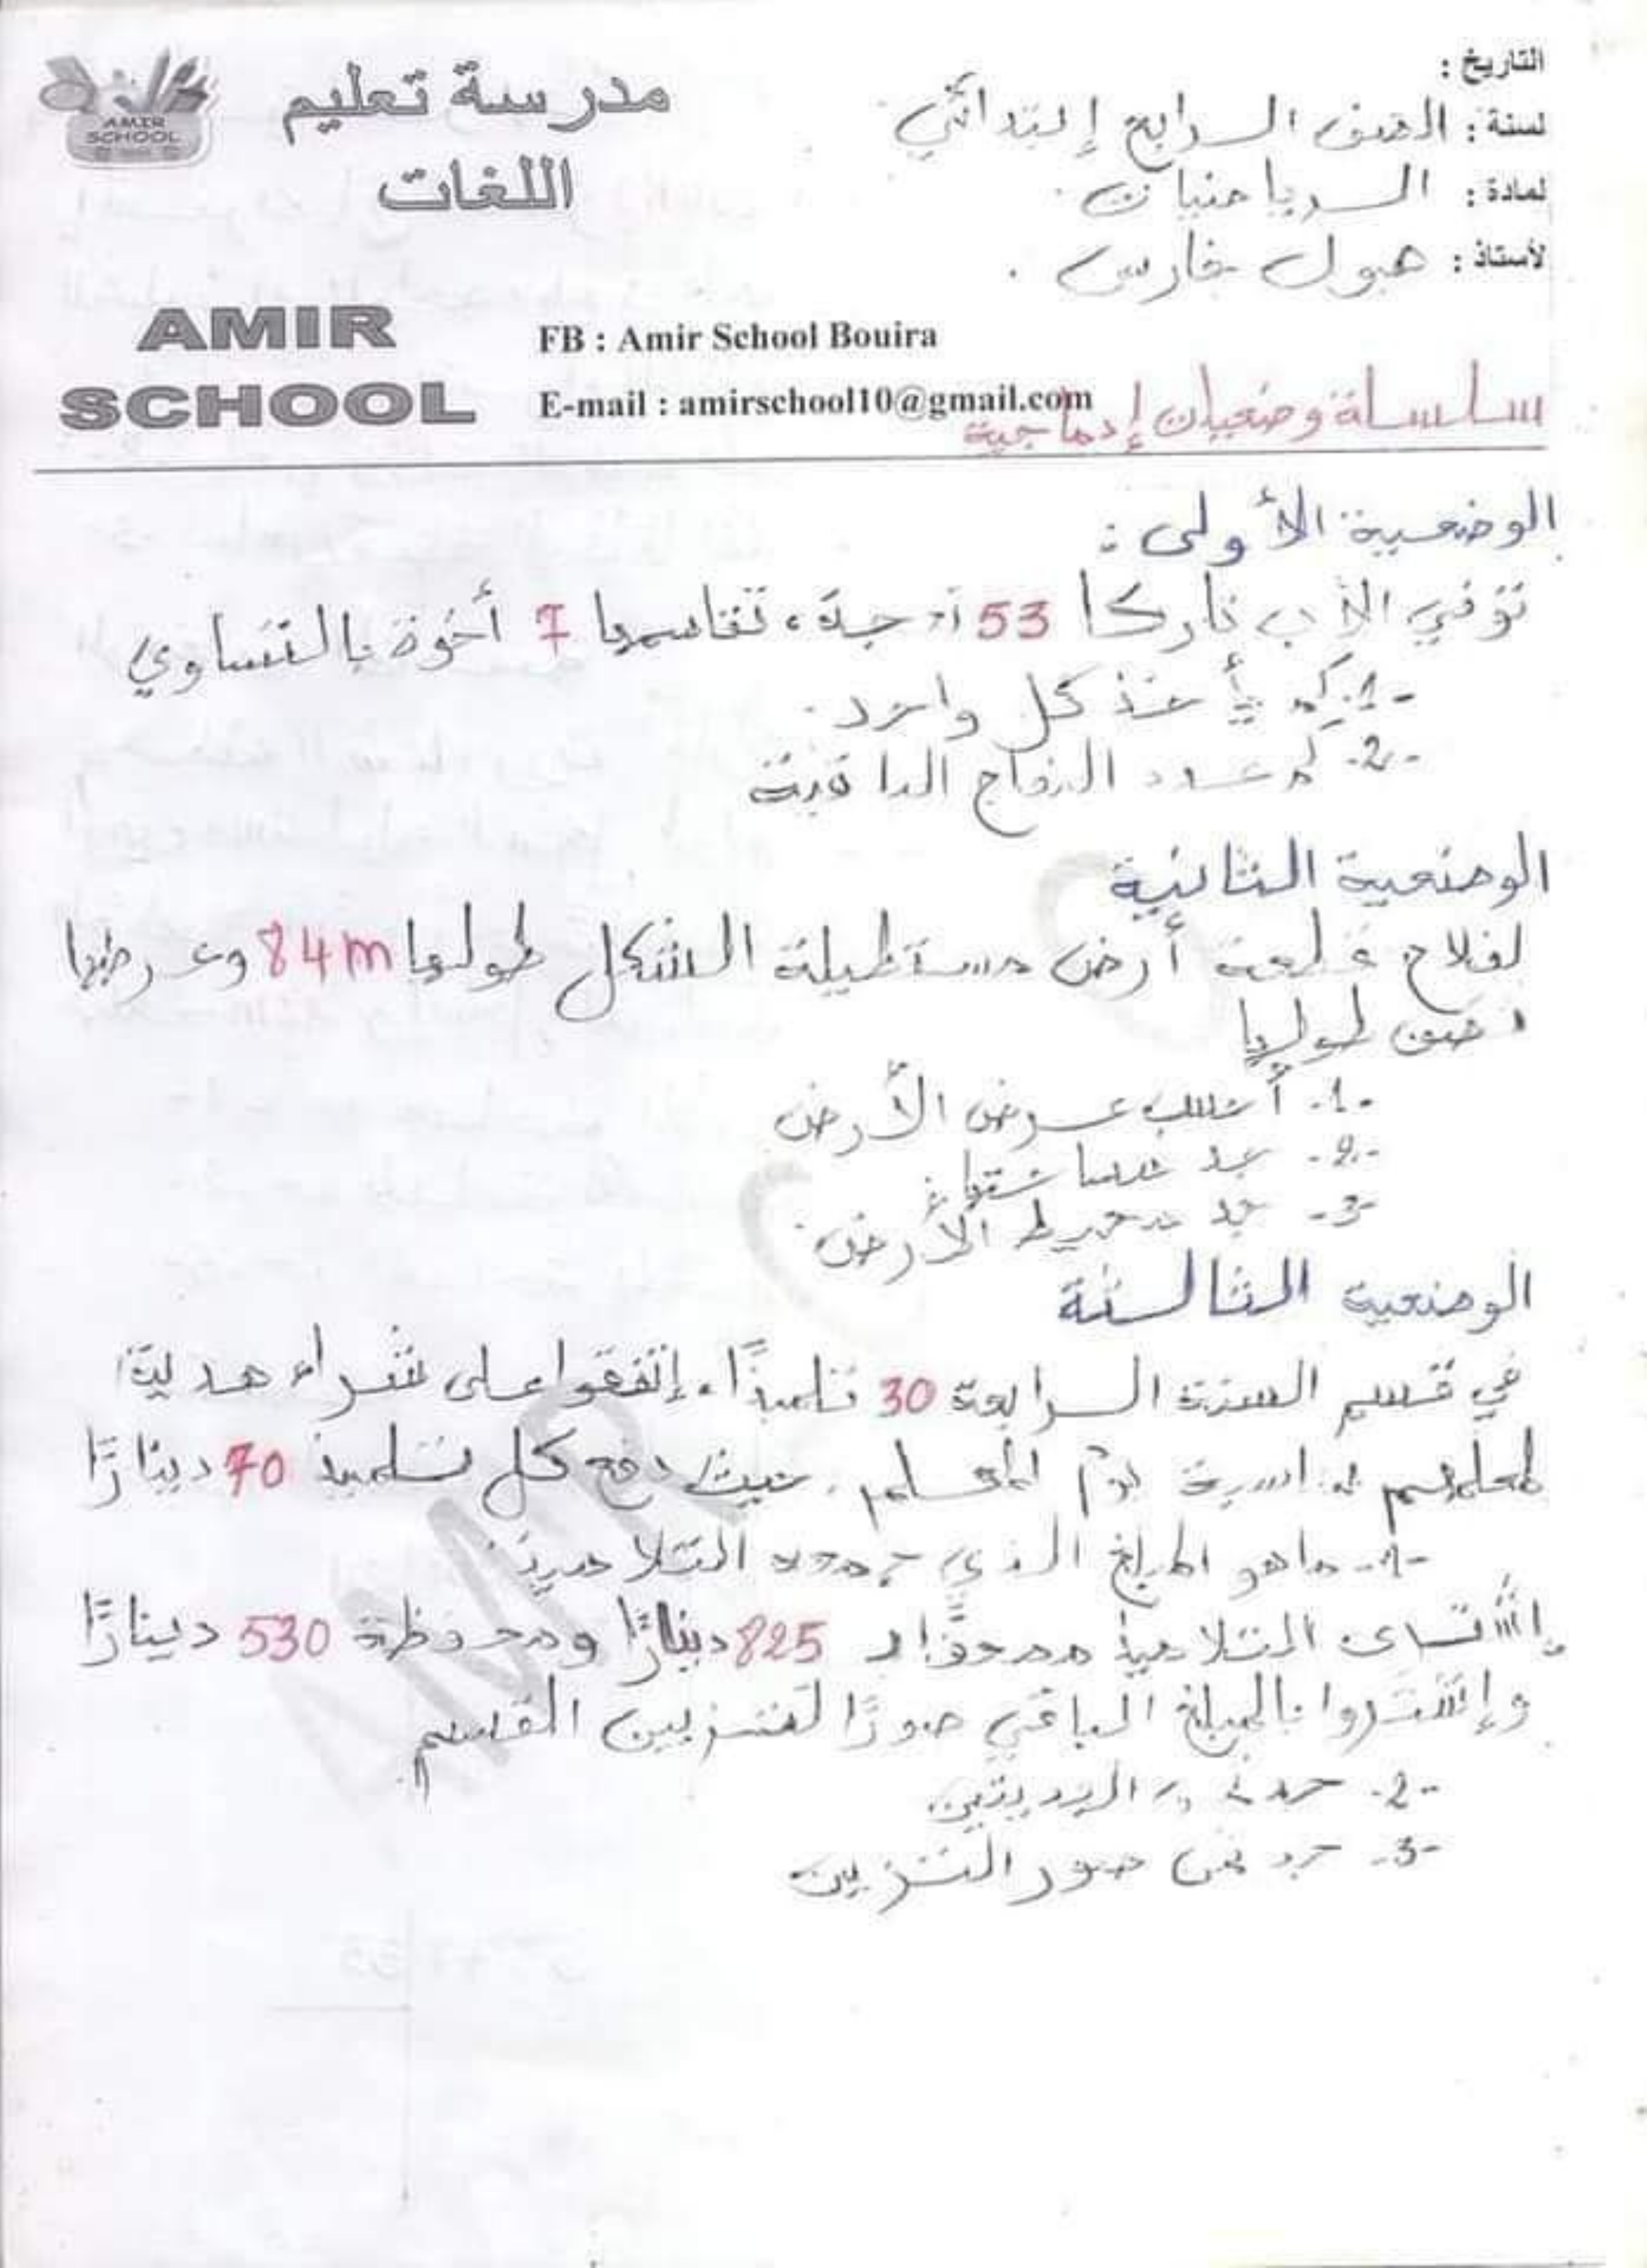 التاريخ :
لسنة : الصف الرابع إبتدائي
لمادة : الرياضيات .
لأستاذ : هبول فارس .
مدرسة تعليم
اللغات
AMIR
SCHOOL
AMIR
SCHOOL
FB : Amir School Bouira
E-mail : amirschool10@gmail.com
سلسلة وضعيات إدماجية
الوضعية الأولى :
توفي الأب تاركا 53 نعجة، تقاسمها 7 أخوة بالتساوي
-1- كم يأخذ كل واحد.
-2- كم عدد النعاج الباقية
الوضعية الثانية
لفلاح قطعة أرض مستطيلة الشكل طولها 84m وعرضها
نصف طولها
-1- أحسب عرض الأرض
-2- جد مساحتها
-3- جد محيط الأرض.
الوضعية الثالثة
في قسم السنة الرابعة 30 تلميذًا، إتفقوا على شراء هدية
لمعلمهم بمناسبة يوم المعلم. حيث دفع كل تلميذ 70 دينارًا
-1- ماهو المبلغ الذي جمعه التلاميذ.
إشترى التلاميذ مصحفًا بـ 825 دينارًا ومحفظة 530 دينارًا
وإشتروا بالمبلغ الباقي صورًا لتزيين القسم
-2- جد الهديتين.
-3- جد ثمن صور التزيين
AMIR